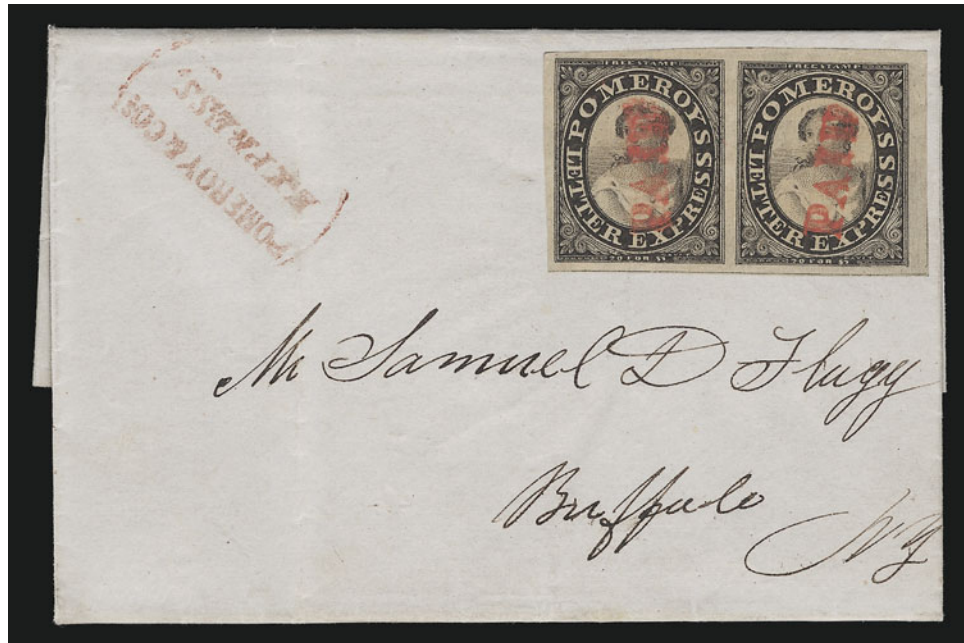 POMEROY & CO'S
EXPRESS
FREE STAMP
POMEROY'S
LETTER EXPRESS
PAID
20 FOR $1
FREE STAMP
POMEROY'S
LETTER EXPRESS
PAID
20 FOR $1
Mr Samuel D Flagg
Buffalo
N Y